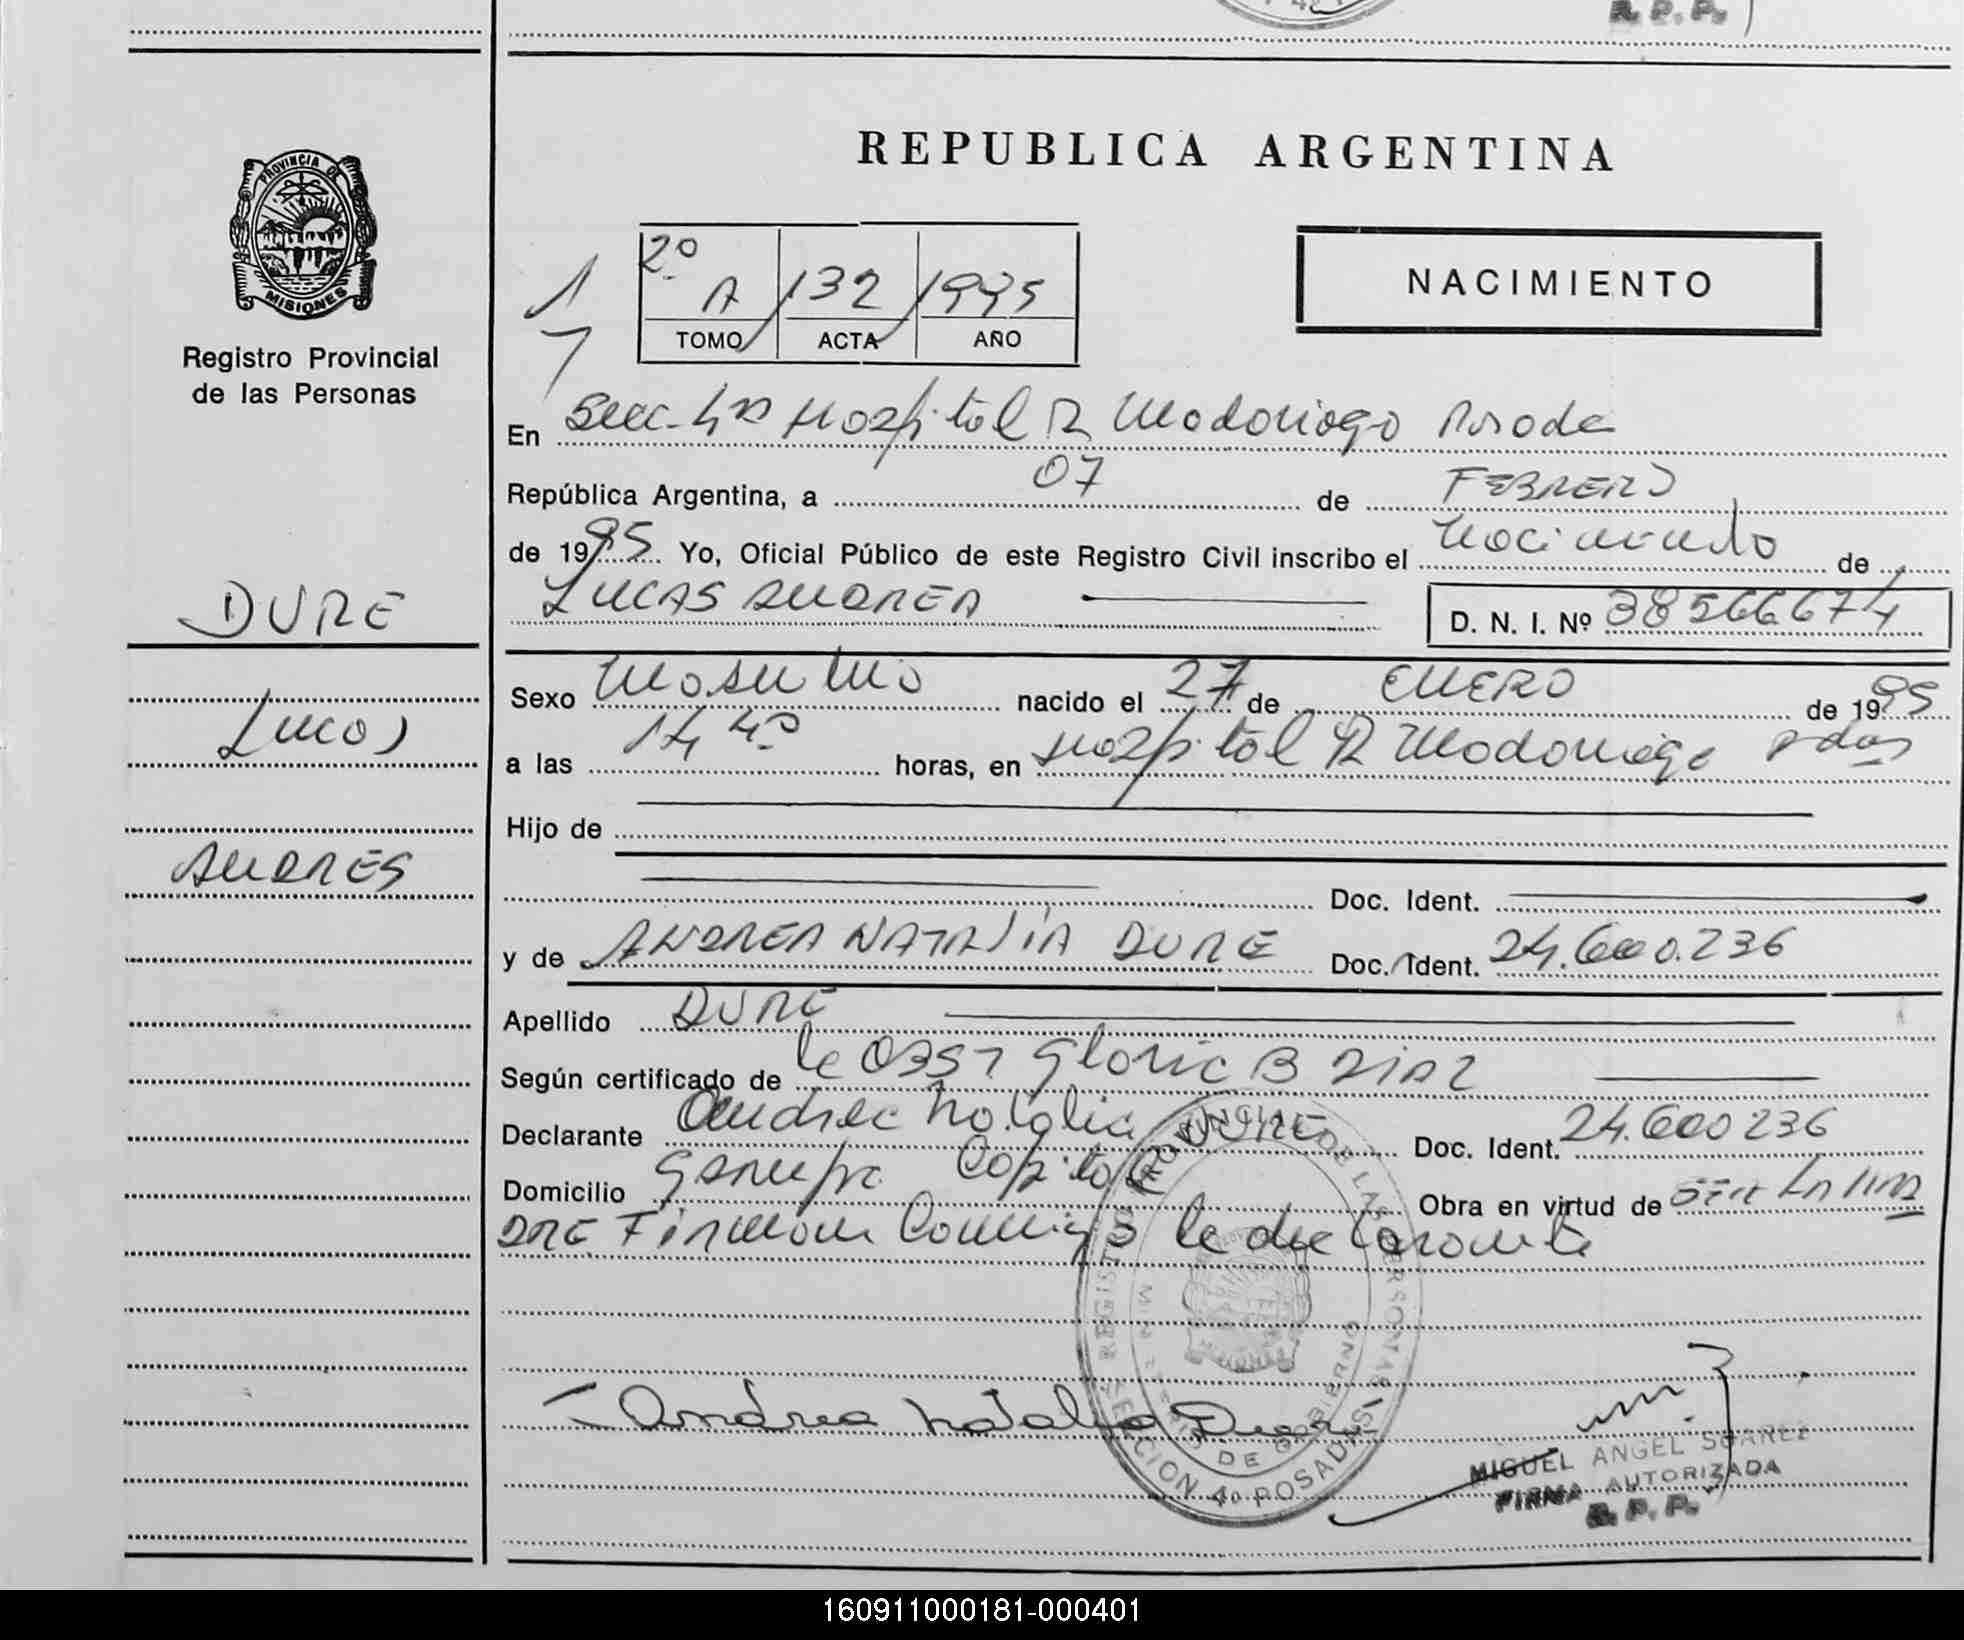 R. P. P.
REPUBLICA ARGENTINA
PROVINCIA DE
MISIONES
Registro Provincial
de las Personas
2º A 132 1995
TOMO ACTA AÑO
NACIMIENTO
En Secc. 4ta Hospital R Madariaga Posadas
República Argentina, a 07 de FEBRERO
de 1995 Yo, Oficial Público de este Registro Civil inscribo el Nacimiento de
DURE
LUCAS ANDREA D. N. I. Nº 38566674
Sexo Masculino nacido el 27 de ENERO de 1995
Lucas
a las 14 40 horas, en Hospital R Madariaga Pdas
Hijo de
ANDRES
Doc. Ident.
y de ANDREA NATALIA DURE Doc. Ident. 24.600.236
Apellido DURE
Según certificado de Gloria B DIAZ
Declarante Andrea Natalia DURE Doc. Ident. 24.600236
Domicilio Garupa Capital Obra en virtud de
Firman Conmigo la declarante
REGISTRO PROVINCIAL DE LAS PERSONAS
MINISTERIO DE GOBIERNO
SECCION 4a POSADAS
Andrea Natalia Dure
MIGUEL ANGEL SUAREZ
FIRMA AUTORIZADA
R. P. P.
160911000181-000401